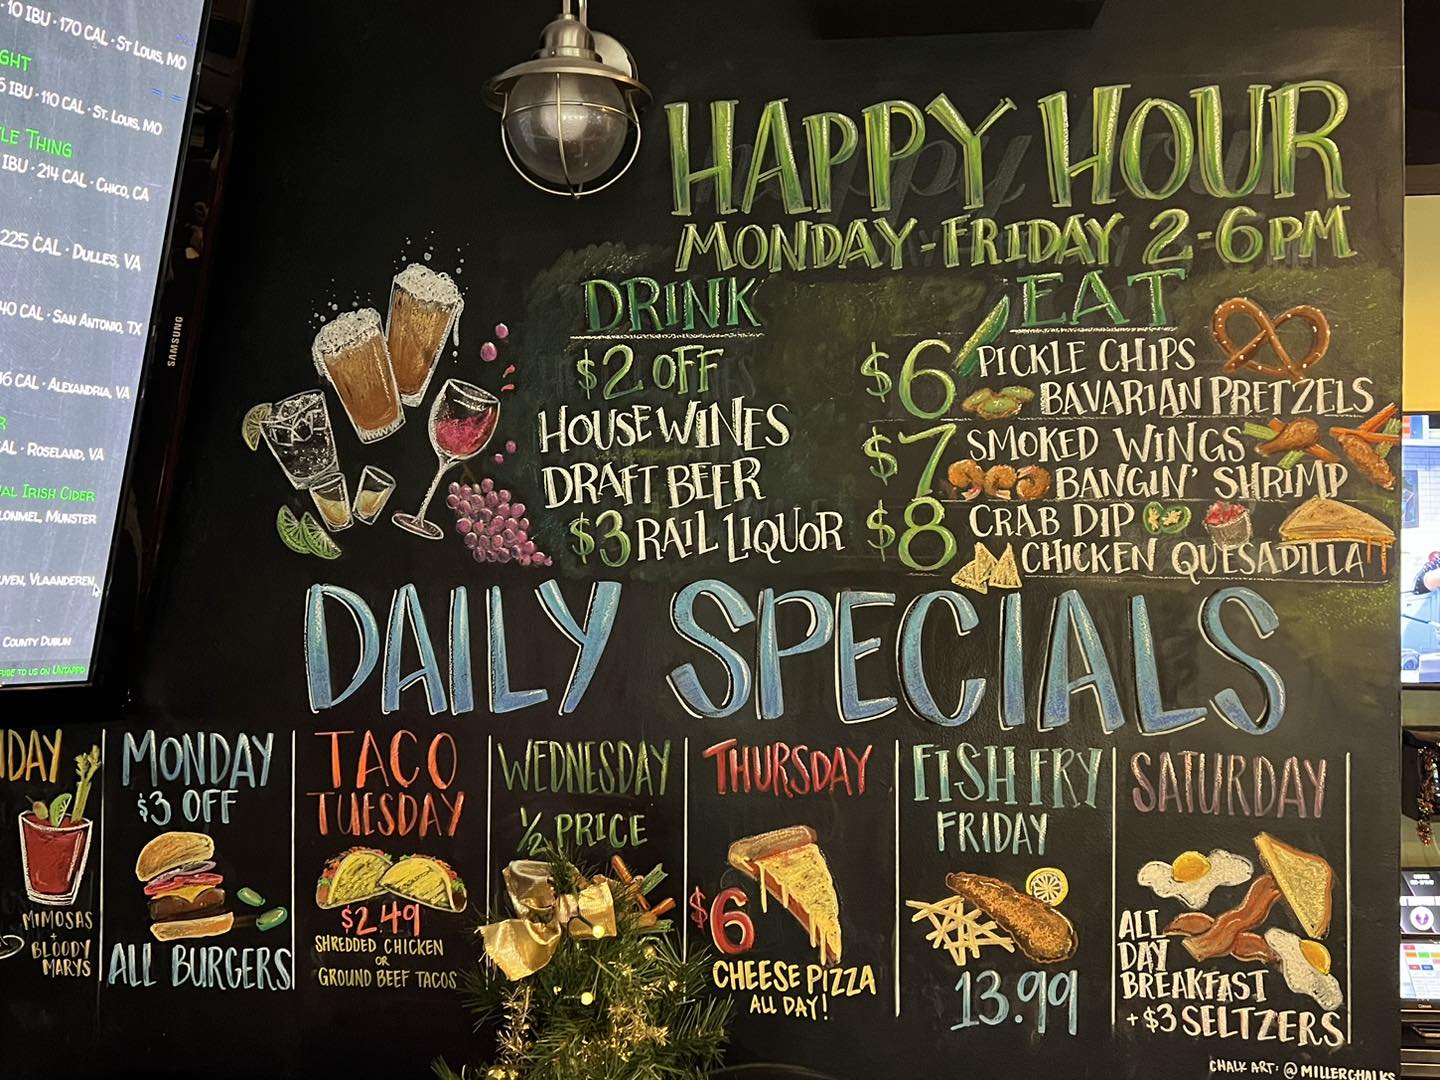 10 IBU · 170 CAL · ST LOUIS, MO
IBU · 110 CAL · ST. LOUIS, MO
THING
IBU · 214 CAL · CHICO, CA
225 CAL · DULLES, VA
CAL · SAN ANTONIO, TX
CAL · ALEXANDRIA, VA
CAL · ROSELAND, VA
IRISH CIDER
MUNSTER
VLAANDEREN
COUNTY DUBLIN
TO US ON UNTAPPD
SAMSUNG
HAPPY HOUR
MONDAY-FRIDAY 2-6PM
DRINK
$2 OFF
HOUSE WINES
DRAFT BEER
$3 RAIL LIQUOR
EAT
$6 PICKLE CHIPS
BAVARIAN PRETZELS
$7 SMOKED WINGS
BANGIN' SHRIMP
$8 CRAB DIP
CHICKEN QUESADILLA
DAILY SPECIALS
MIMOSAS
+
BLOODY
MARYS
MONDAY
$3 OFF
ALL BURGERS
TACO
TUESDAY
$2.49
SHREDDED CHICKEN
OR
GROUND BEEF TACOS
WEDNESDAY
½ PRICE
THURSDAY
$6
CHEESE PIZZA
ALL DAY!
FISH FRY
FRIDAY
13.99
SATURDAY
ALL
DAY
BREAKFAST
+ $3 SELTZERS
CHALK ART: @MILLERCHALKS